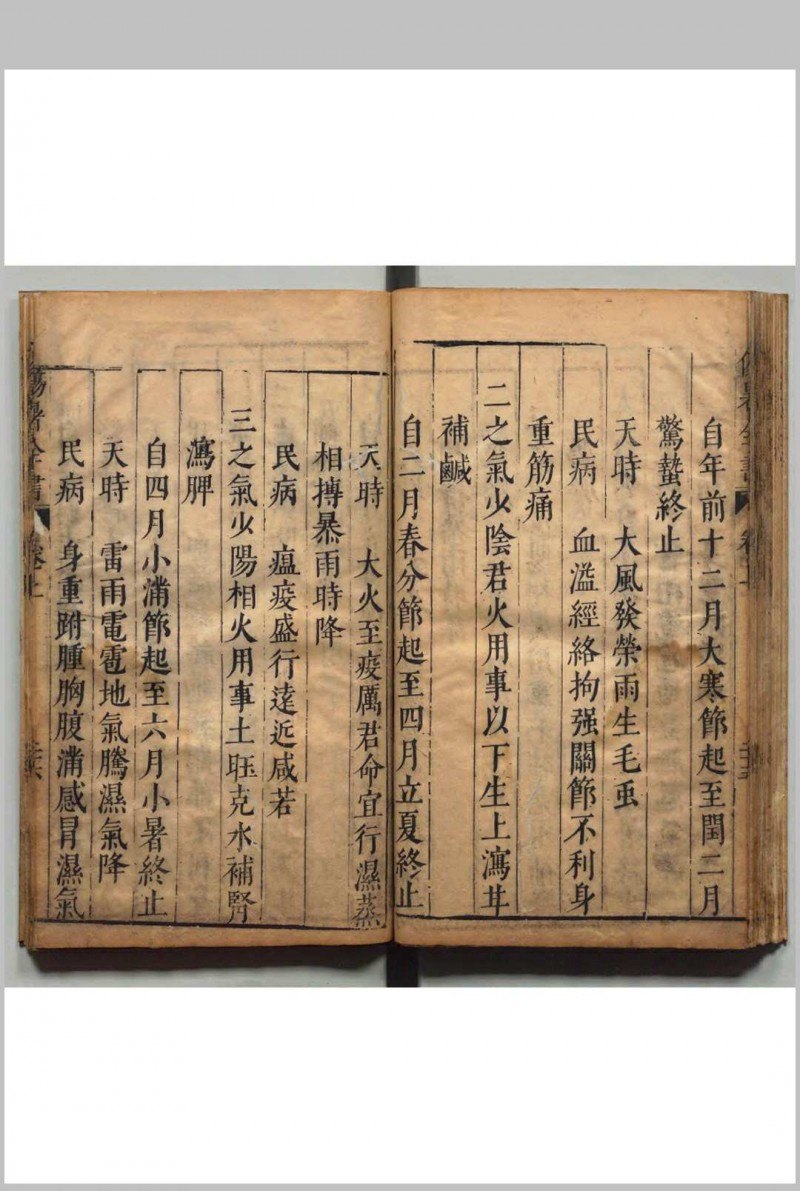 自年前十二月大寒節起至閏二月
驚蟄終止
天時　大風發榮雨生毛虫
民病　血溢經絡拘强關節不利身
重筋痛
二之氣少陰君火用事以下生上瀉甘
補鹹
自二月春分節起至四月立夏終止
天時　大火至疫厲君命宜行濕蒸
相摶暴雨時降
民病　瘟疫盛行遠近咸若
三之氣少陽相火用事土旺克水補腎
瀉脾
自四月小滿節起至六月小暑終止
天時　雷雨電雹地氣騰濕氣降
民病　身重跗腫胸腹滿感冒濕氣
傷暑全書　卷上